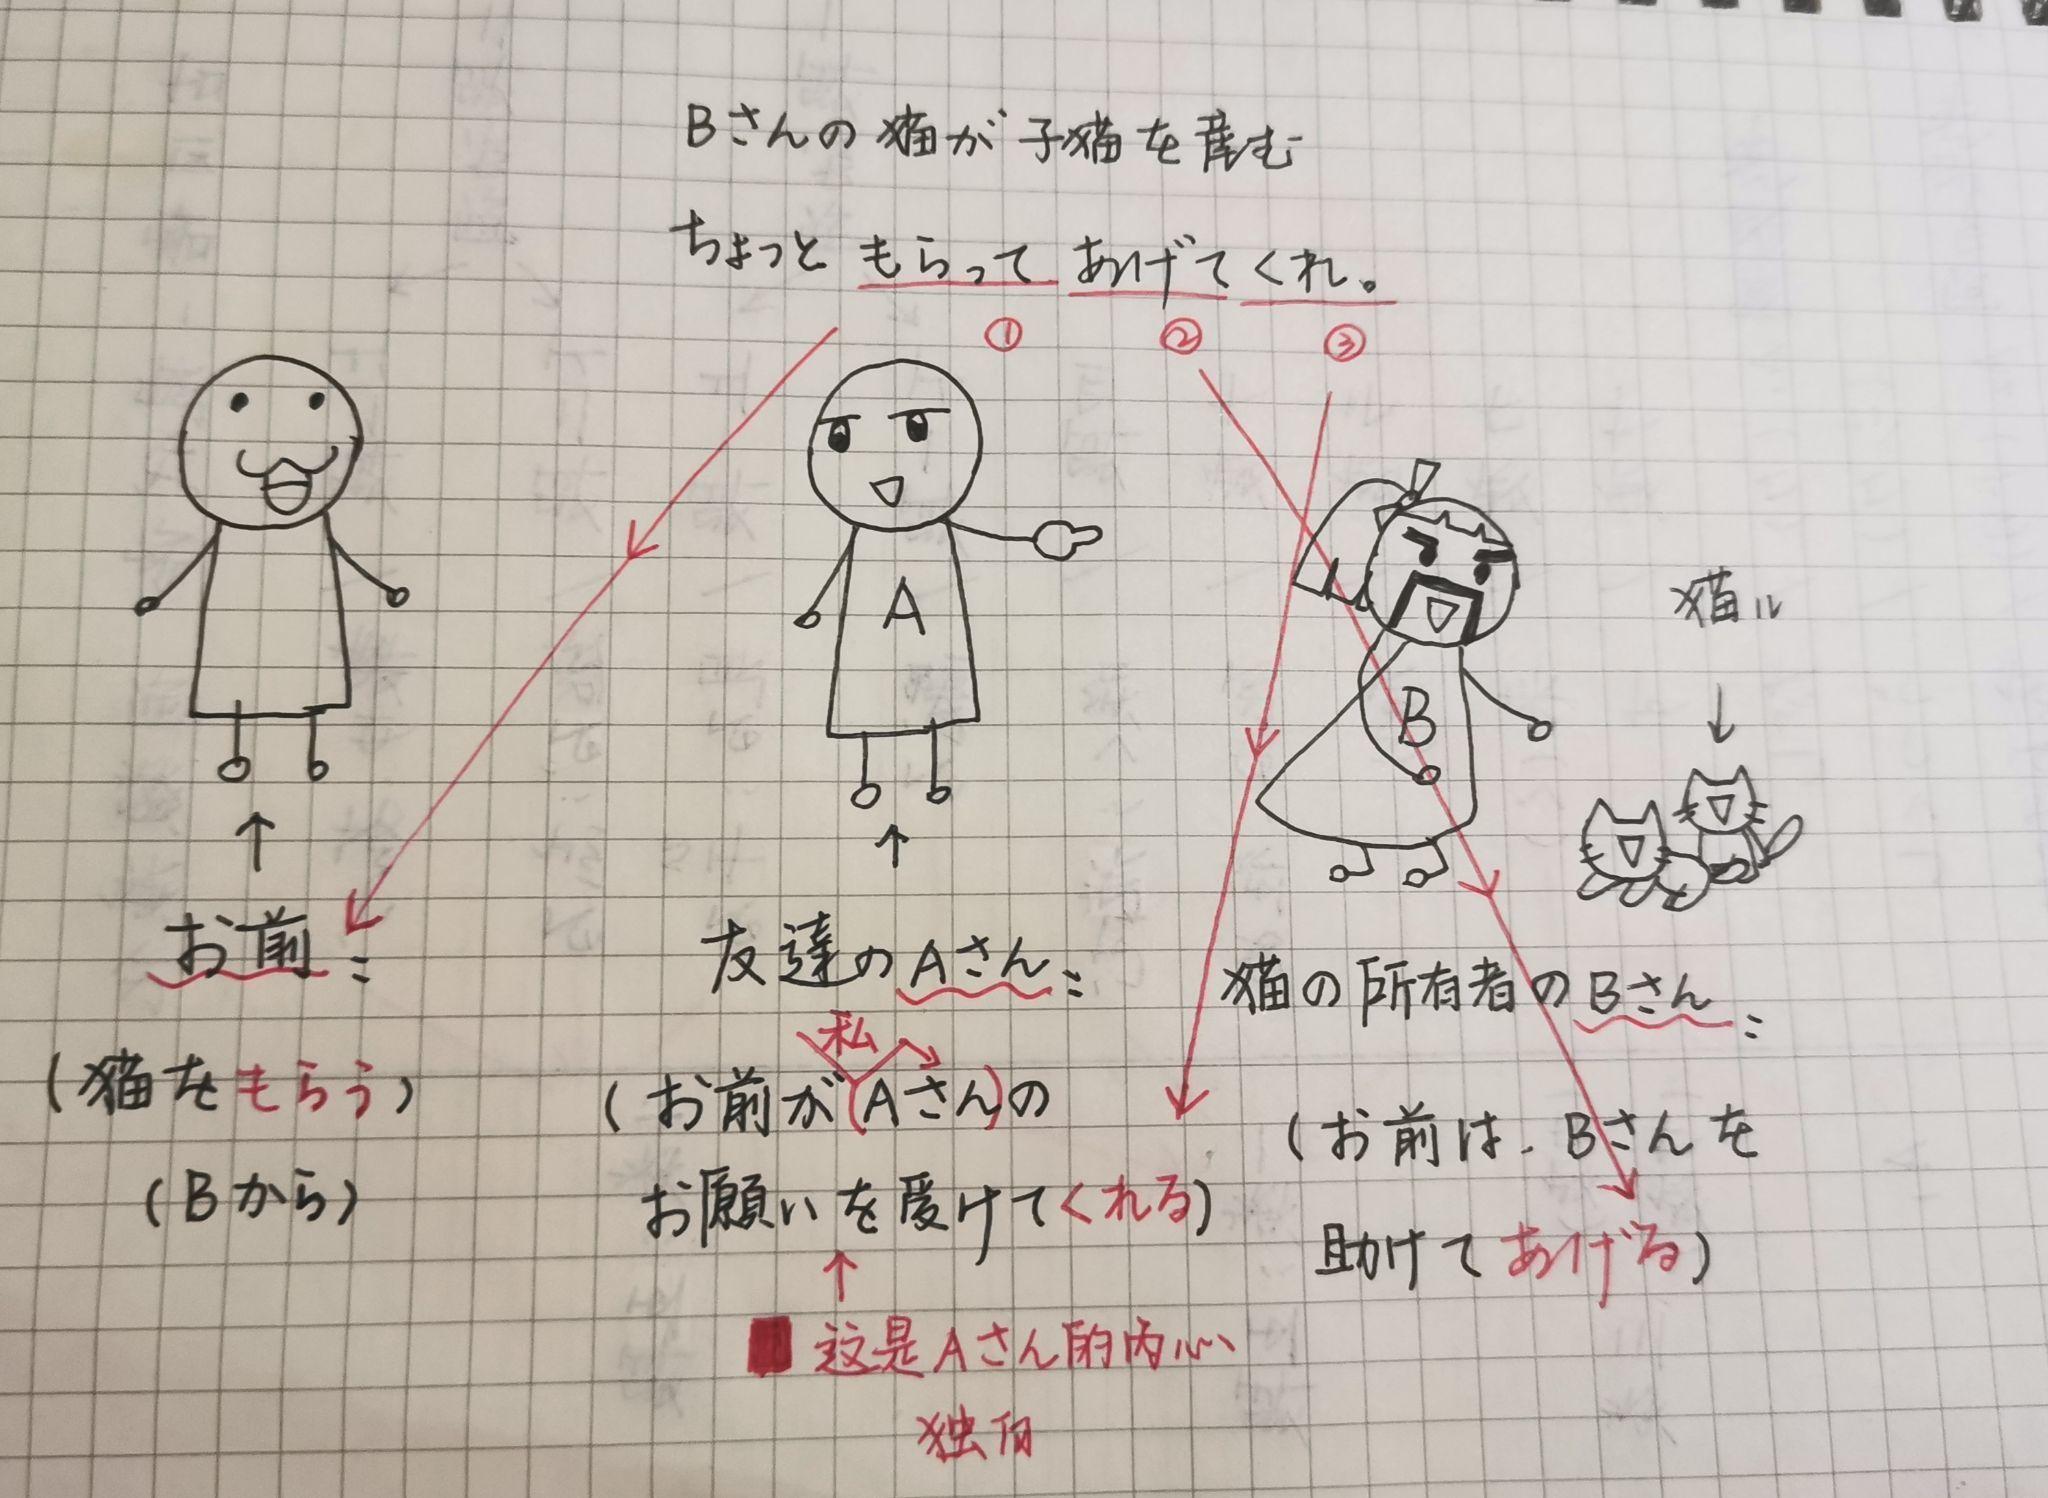 Bさんの猫が子猫を産む
ちょっともらってあげてくれ。
① ② ③
A
B
猫ル
お前:
(猫をもらう)
(Bから)
友達のAさん:
私
(お前が(Aさん)の
お願いを受けてくれる)
这是Aさん的内心
独白
猫の所有者のBさん:
(お前は、Bさんを
助けてあげる)